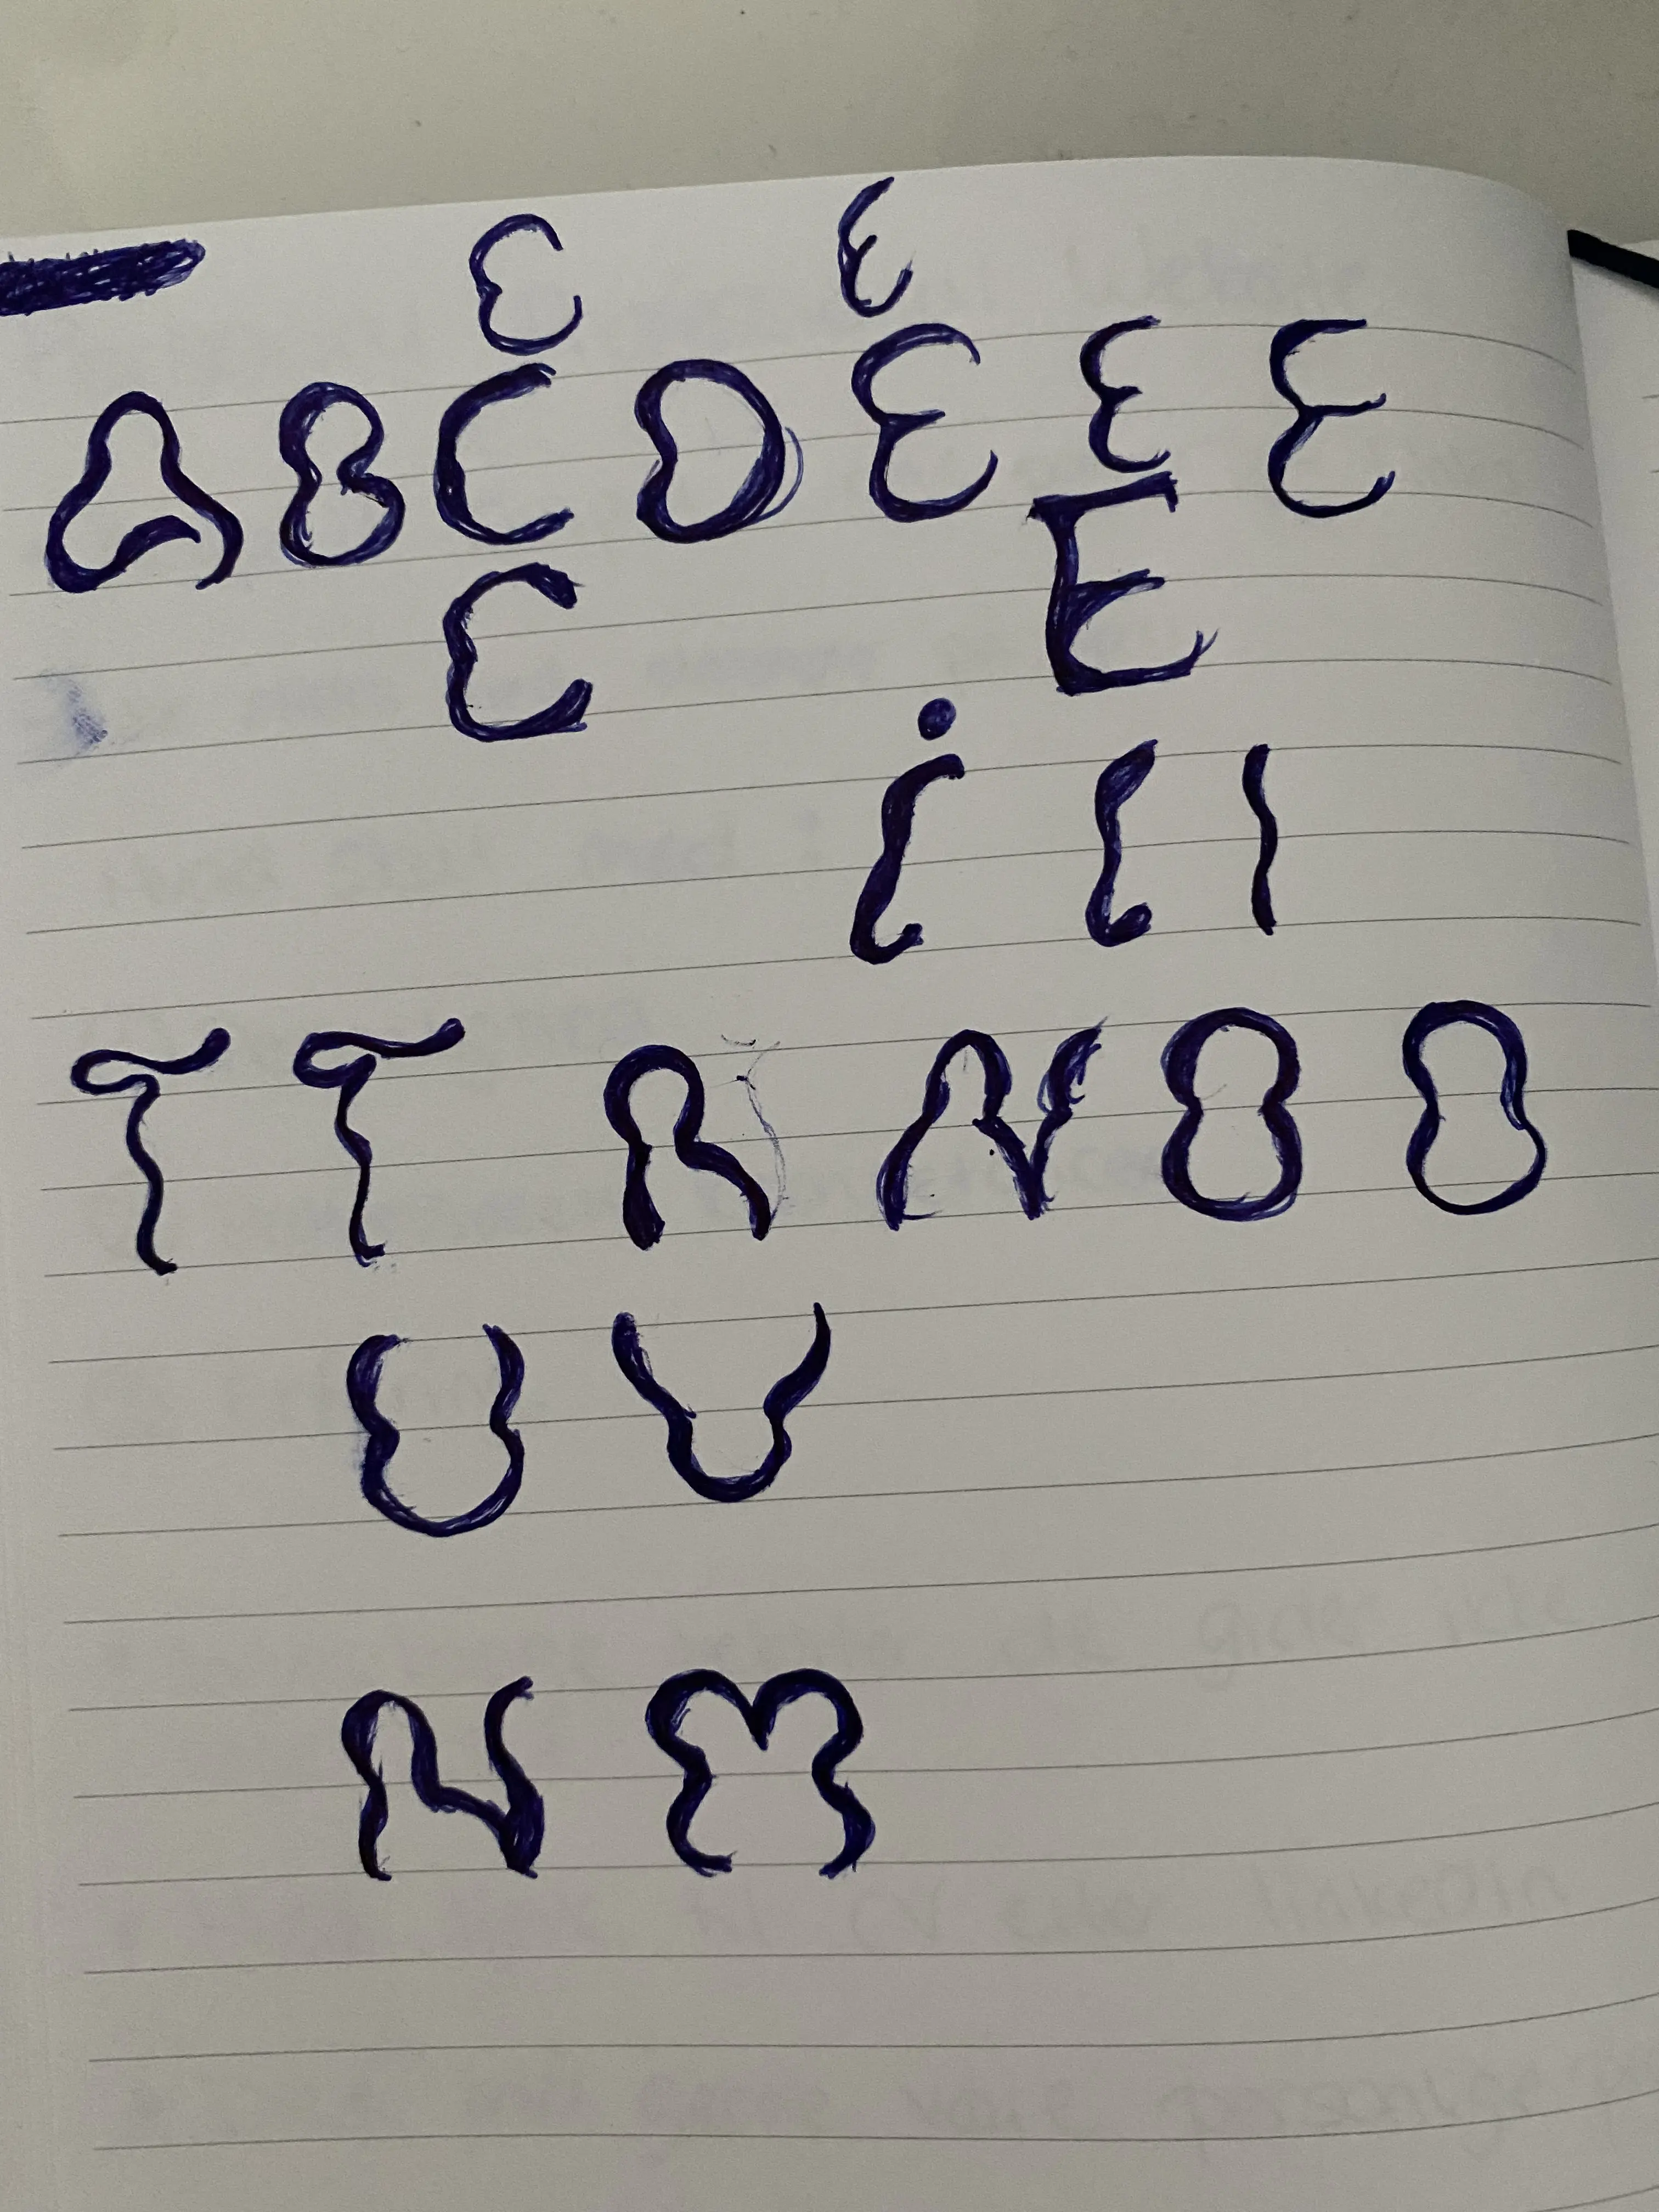 C E
A B C D E E E
C E
i I I
T T R N O O
U V
N M